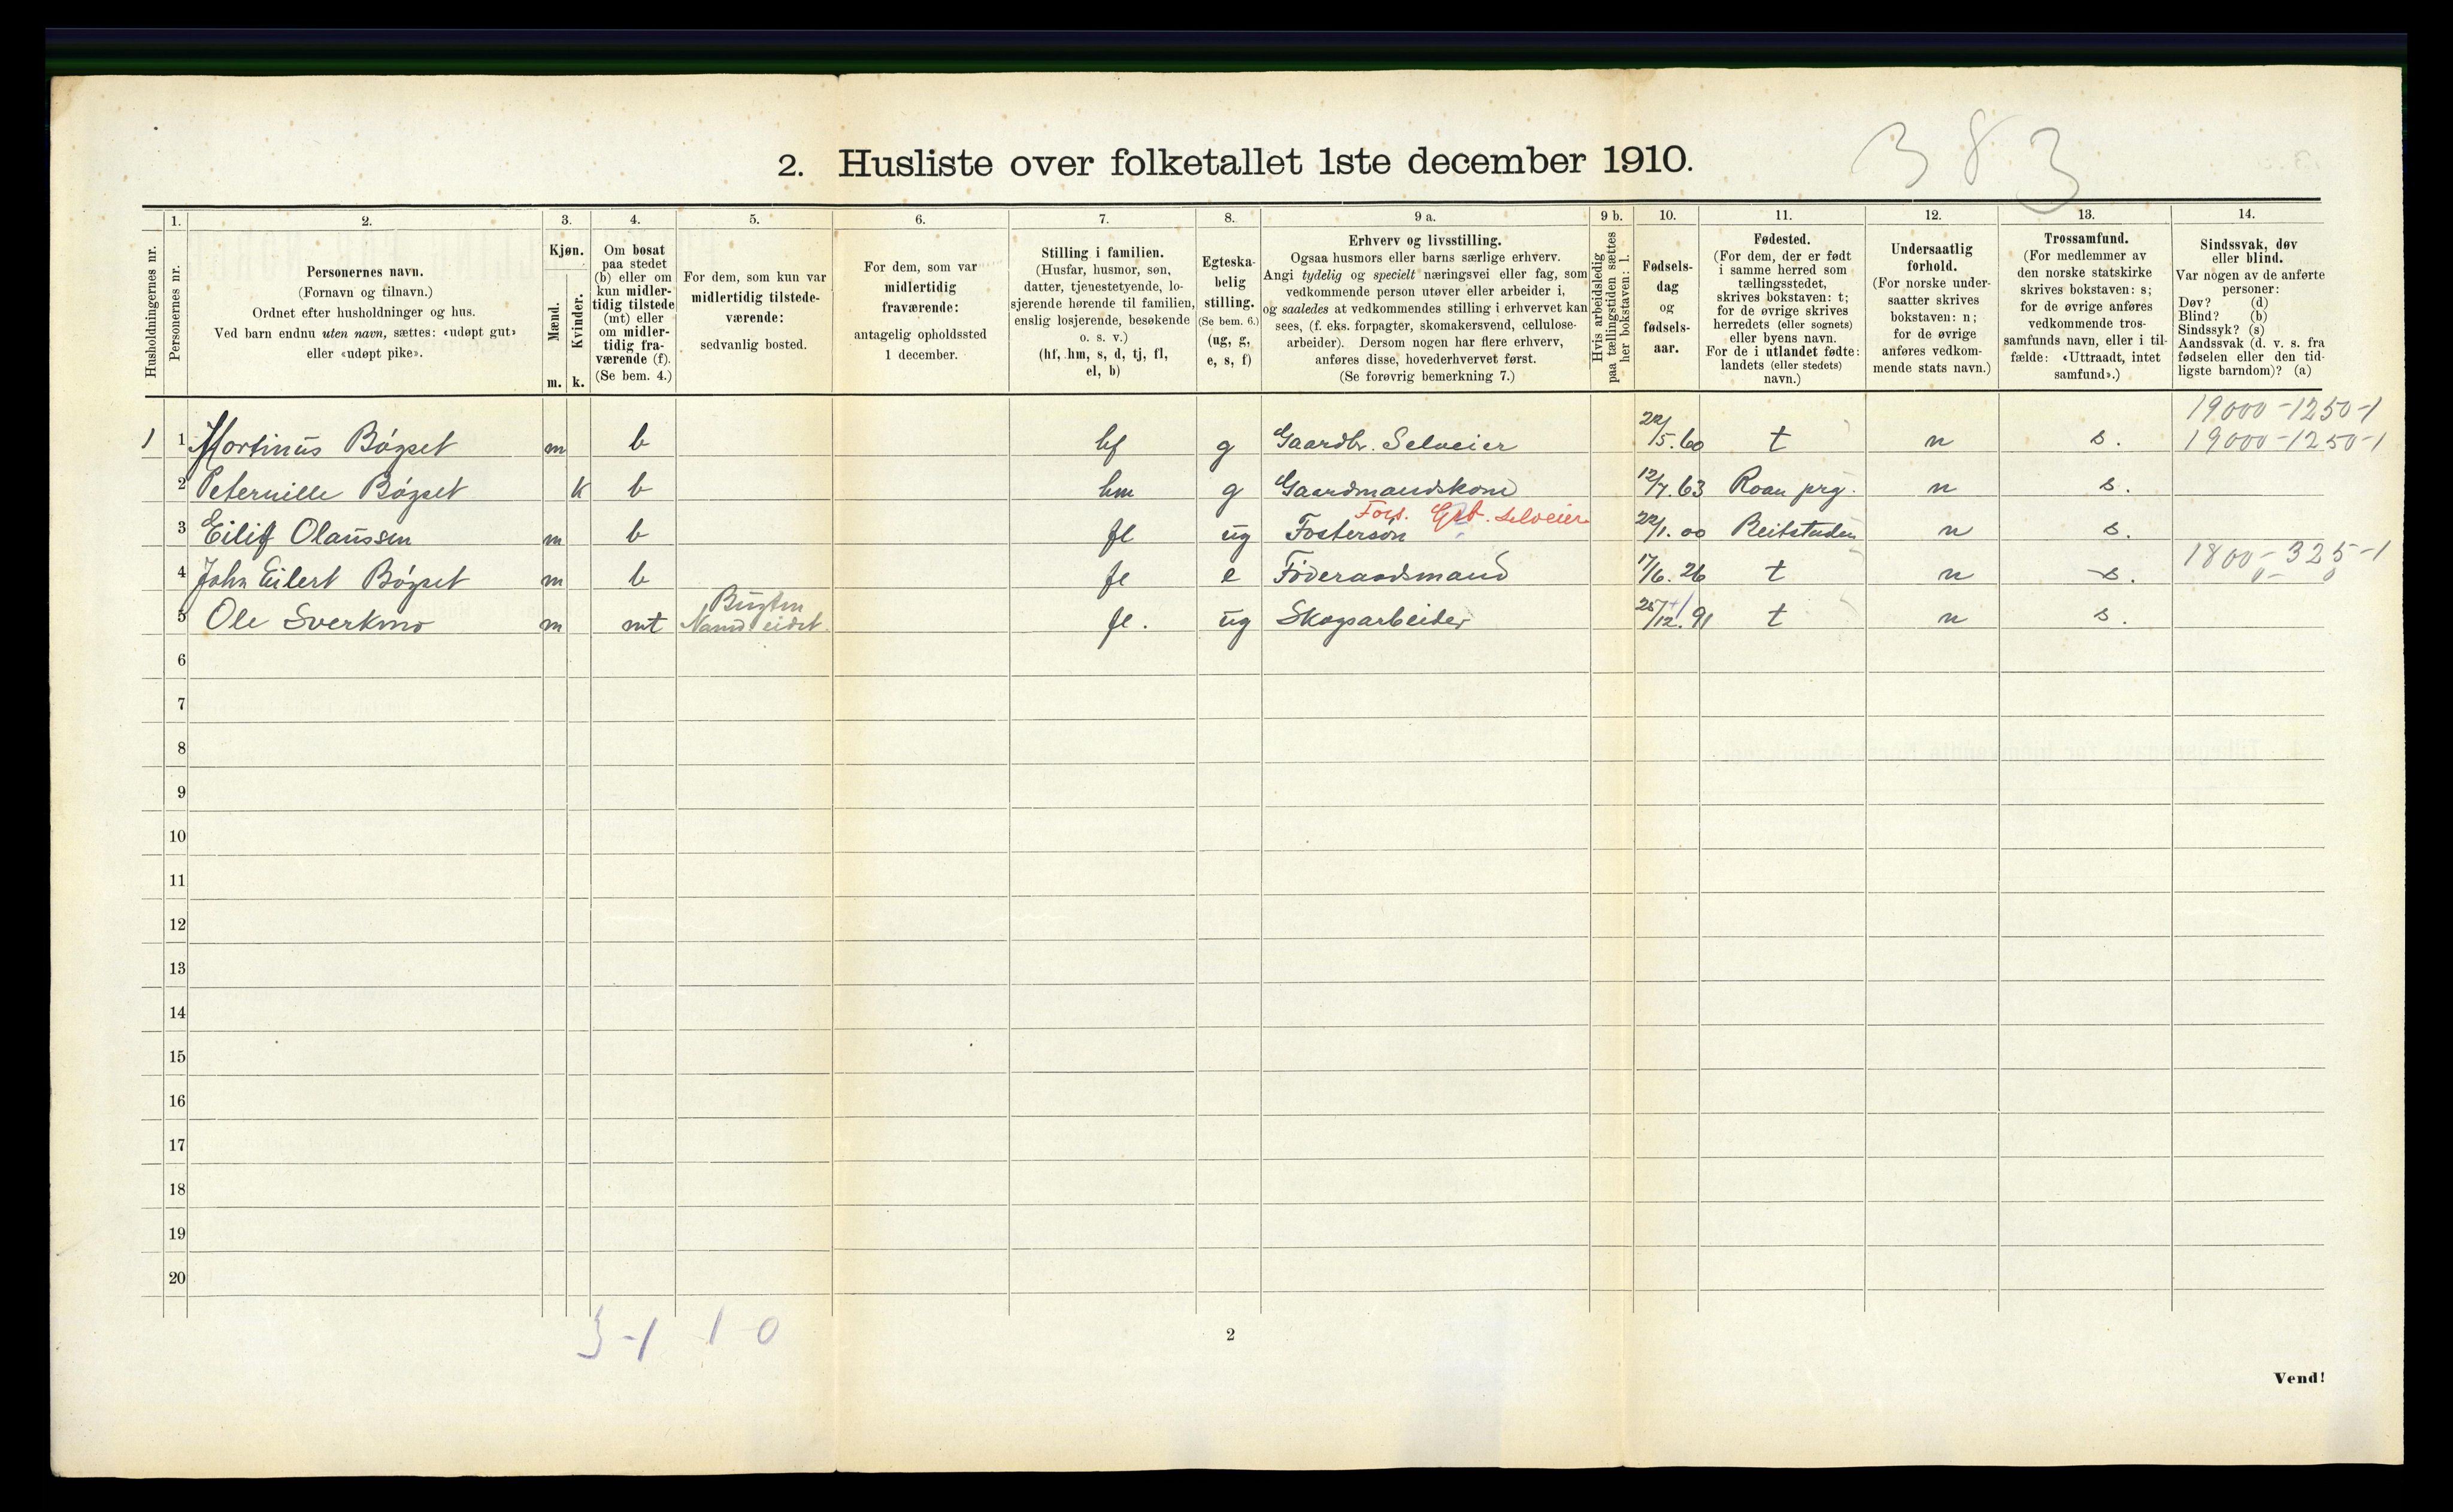 383
2. Husliste over folketallet 1ste december 1910.
Husholdningernes nr.
1.
Personernes nr.
2.
Personernes navn.
(Fornavn og tilnavn.)
Ordnet efter husholdninger og hus.
Ved barn endnu uten navn, sættes: «udøpt gut»
eller «udøpt pike».
3.
Kjøn.
Mænd.
Kvinder.
m. k.
4.
Om bosat
paa stedet
(b) eller om
kun midler-
tidig tilstede
(mt) eller
om midler-
tidig fra-
værende (f).
(Se bem. 4.)
5.
For dem, som kun var
midlertidig tilstede-
værende:
sedvanlig bosted.
6.
For dem, som var
midlertidig
fraværende:
antagelig opholdssted
1 december.
7.
Stilling i familien.
(Husfar, husmor, søn,
datter, tjenestetyende, lo-
sjerende hørende til familien,
enslig losjerende, besøkende
o. s. v.)
(hf, hm, s, d, tj, fl,
el, b)
8.
Egteska-
belig
stilling.
(Se bem. 6.)
(ug, g,
e, s, f)
9 a.
Erhverv og livsstilling.
Ogsaa husmors eller barns særlige erhverv.
Angi tydelig og specielt næringsvei eller fag, som
vedkommende person utøver eller arbeider i,
og saaledes at vedkommendes stilling i erhvervet kan
sees, (f. eks. forpagter, skomakersvend, cellulose-
arbeider). Dersom nogen har flere erhverv,
anføres disse, hovederhvervet først.
(Se forøvrig bemerkning 7.)
9 b.
Hvis arbeidsledig
paa tællingstiden sættes
her bokstaven: l.
10.
Fødsels-
dag
og
fødsels-
aar.
11.
Fødested.
(For dem, der er født
i samme herred som
tællingsstedet,
skrives bokstaven: t;
for de øvrige skrives
herredets (eller sognets)
eller byens navn.
For de i utlandet fødte:
landets (eller stedets)
navn.)
12.
Undersaatlig
forhold.
(For norske under-
saatter skrives
bokstaven: n;
for de øvrige
anføres vedkom-
mende stats navn.)
13.
Trossamfund.
(For medlemmer av
den norske statskirke
skrives bokstaven: s;
for de øvrige anføres
vedkommende tros-
samfunds navn, eller i til-
fælde: «Uttraadt, intet
samfund».)
14.
Sindssvak, døv
eller blind.
Var nogen av de anførte
personer:
Døv? (d)
Blind? (b)
Sindssyk? (s)
Aandssvak (d. v. s. fra
fødselen eller den tid-
ligste barndom)? (a)
19000-1250-1
1 1 Mortinus Bógset m b hf g Gaardbr. Selveier 22/5.60 t n s. 19000-1250-1
2 Peternille Bógset k b hm g Gaardmandskone 12/7.63 Roan prg. n s.
Fors. Gbr. selveier
3 Eilif Olaussen m b fl ug Fosterson 22/1.00 Beitstaden n s.
4 John Eilert Bógset m b fl e Föderaadsmand 17/6.26 t n s. 1800-325-1
5 Ole Sverkmo m mt Namdseidet fl. ug Skogsarbeider 25/12.91 t n s.
6
7
8
9
10
11
12
13
14
15
16
17
18
19
20
3-1 1 0
2
Vend!